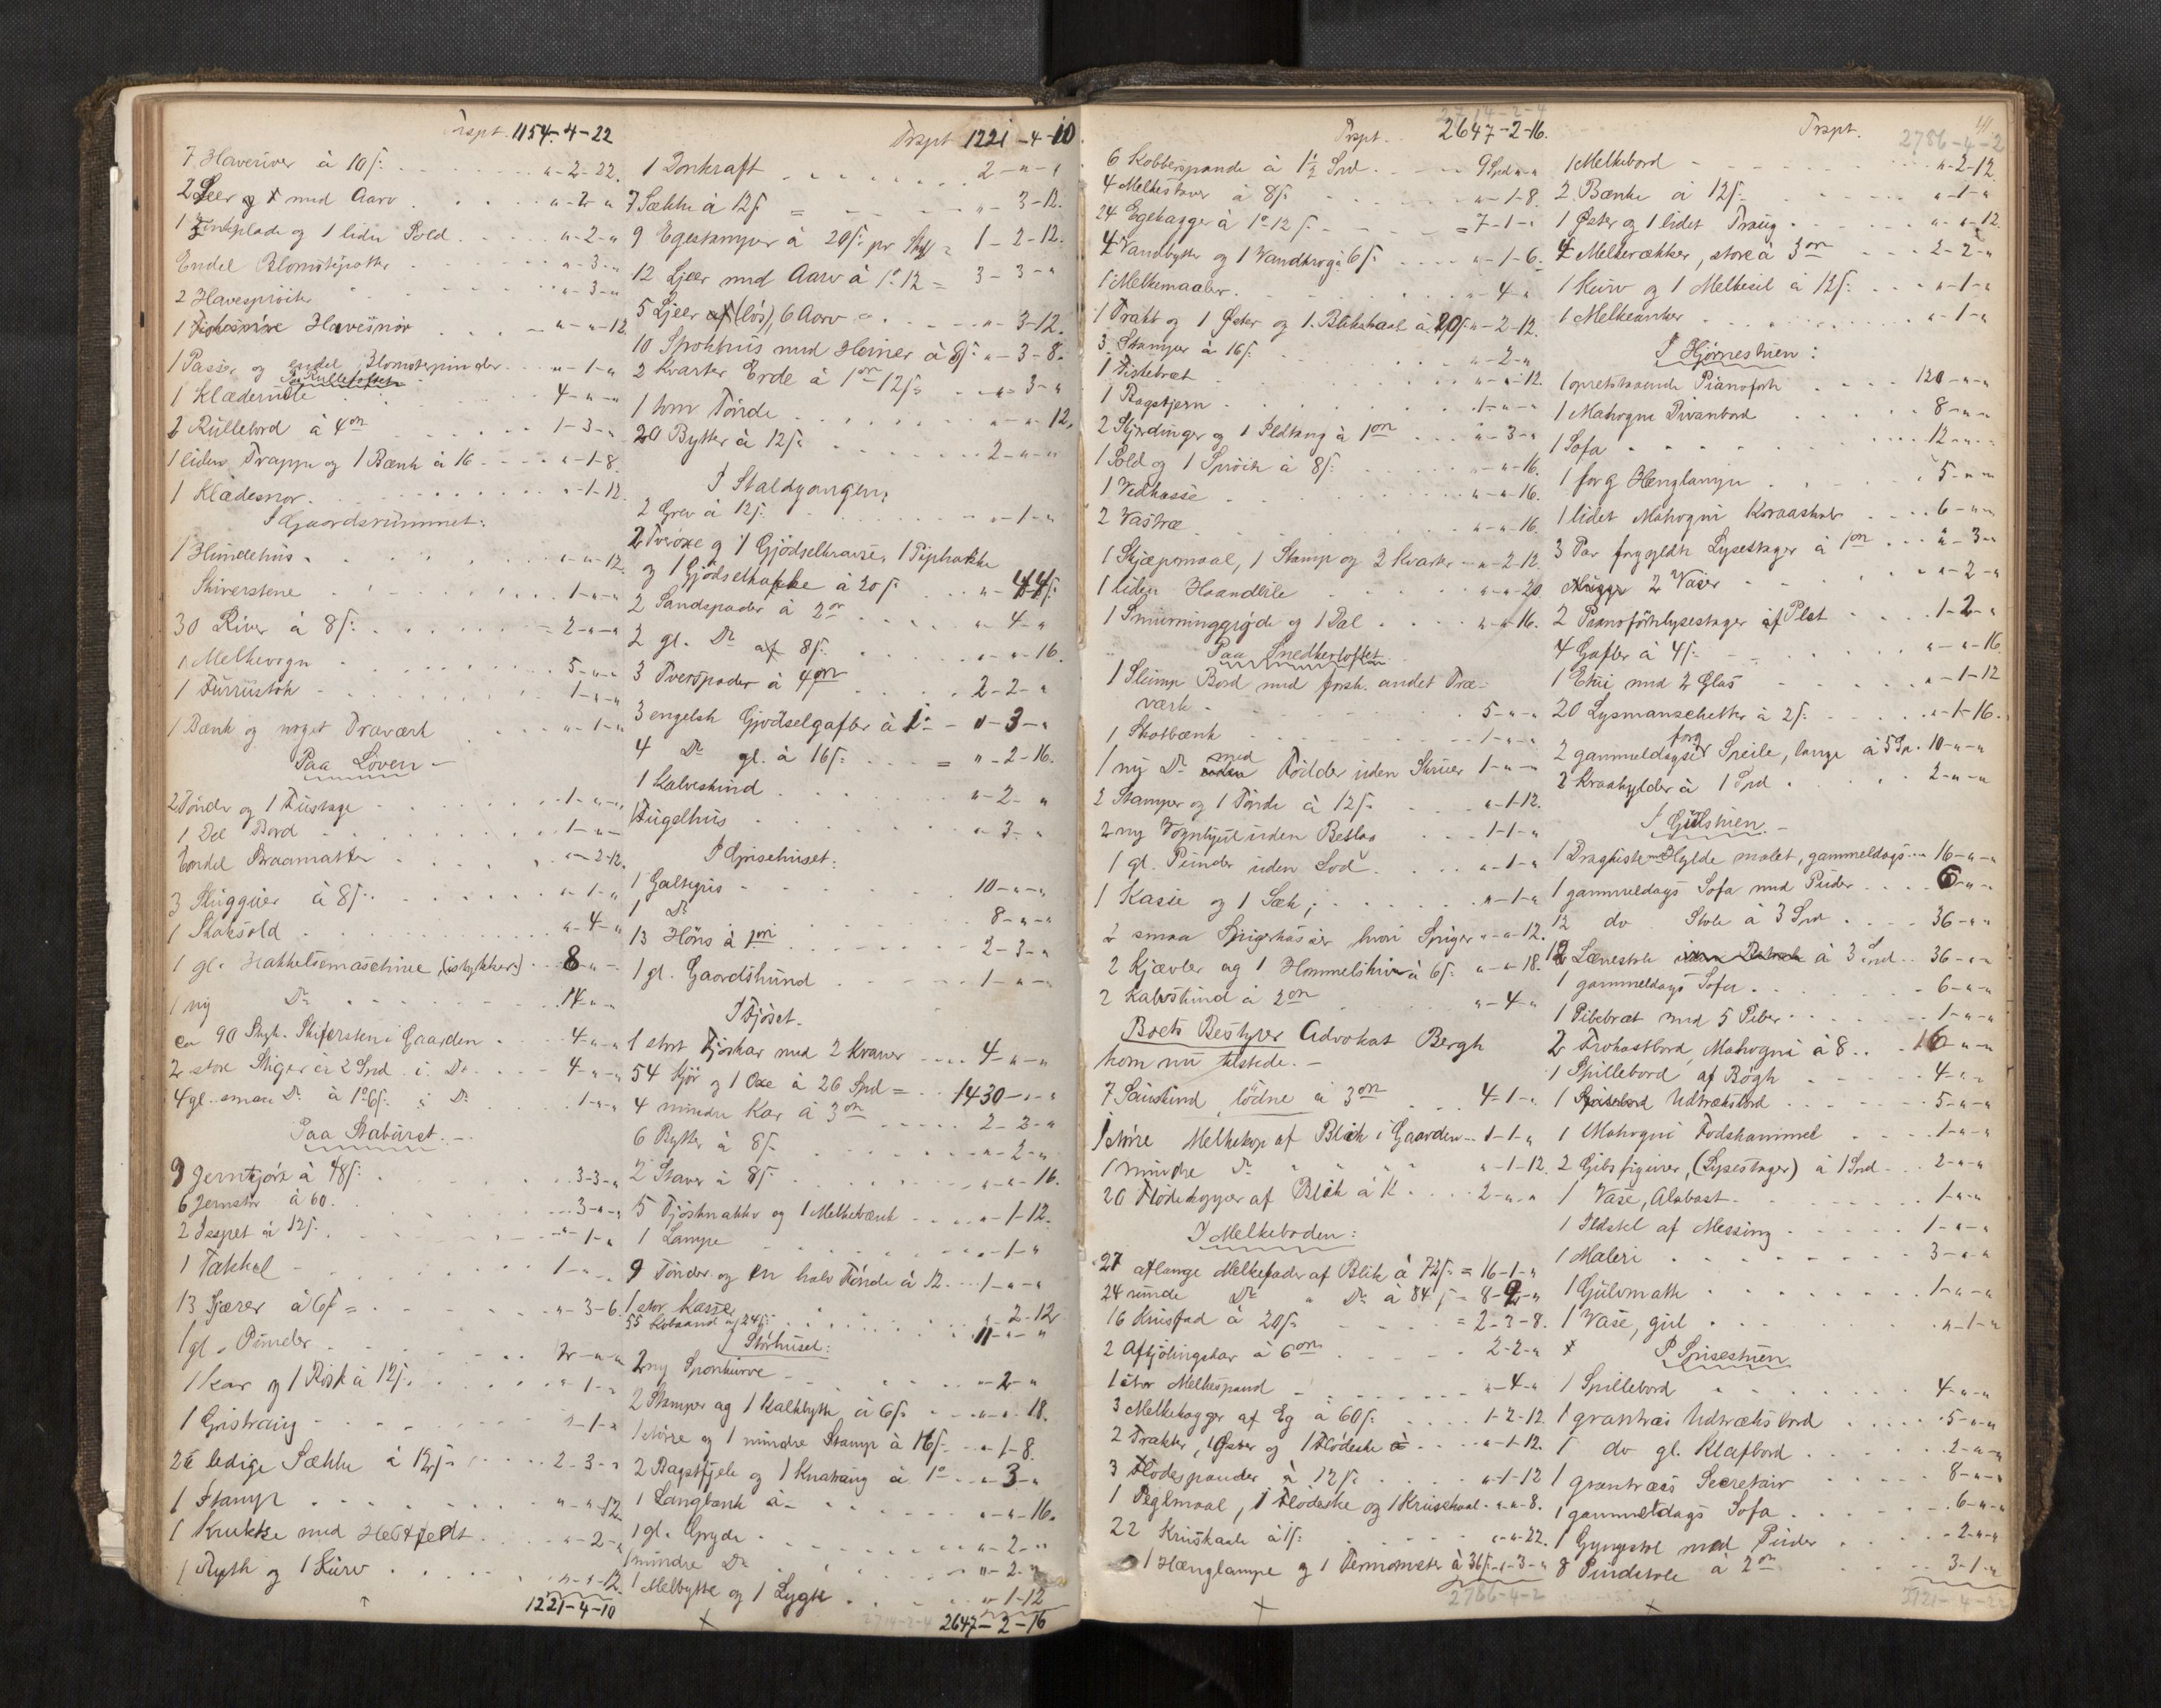 Trspt. 1154-4-22
7 Haveriver à 10 f: . . . " - 2 - 22.
2 Leer og 1 med Aarv . . . " - 2 - "
1 Zinkplade og 1 liden Sold . . . " - 2 - "
Endel Blomsterpotter . . . " - 3 - "
2 Havesprøiter . . . " - 3 - "
1 Havesnor . . . " - " - 12
1 Passer og endel Blomsterpinder . . . " - 1 - "
Paa Rulleloftet
1 Klæderulle . . . 4 - " - "
2 Rullebord à 4 ort . . . 1 - 3 - "
1 liden Trappe og 1 Bænk à 16 . . . " - 1 - 8.
1 Klædesnor . . . " - 1 - 12.
I Gaardsrummet:
1 Hundehus . . . " - " - 12.
Skiverstene . . . 1 - " - "
30 River à 8 f: . . . = 2 - " - "
1 Melkevogn . . . 5 - " - "
1 Furrustok . . . 1 - " - "
1 Bænk og noget Træværk . . . " - 1 - "
Paa Loven -
2 Tønder og 1 Fustage . . . 1 - " - "
1 Del Bord . . . 1 - " -
Endel Straamatter . . . " - 2 - 12.
3 Skugguer à 8 f: . . . " - 1 - "
1 Staksold . . . " - 4 - "
1 gl. Hakkelsemaschine (istykker) . . 8 - " -
1 ny Do . . . 14 - " - "
ca 90 Styk. Skifersten i Gaarden . . . 4 - " - "
2 store Stiger à 2 Spd i Do . . . 4 - " - "
4 gl. smaa Do à 1 o 6 f: i Do . . . 1 - " - "
Paa Staburet. -
9 Jerntjørk à 48 f: . . . 3 - 3 - "
6 Jernstør à 60. . . . 3 - " - "
2 Isspet à 12 f: . . . " - 1 - "
1 Takkel . . . 1 - " - "
13 Sjærer à 6 f = . . . " - 3 - 6.
1 gl. Pünder . . . 2 - " - "
1 Kar og 1 Rist à 12 f: . . . " - 1 - "
1 Gristraug . . . " - 1 - "
26 ledige Sække à 12 f: . . . 2 - 3 - "
1 Stamp . . . " - " - 12
1 Krukke med Hestefedt . . . " - 2 - "
1 Bytte og 1 Kurv . . . " - " - 12.
1221-4-10
Trspt 1221-4-10
1 Donkraft . . . 2 - " - "
7 Sække à 12 f = . . . " - 3 - 12.
9 Egestamper à 20 f: pr Styk = 1 - 2 - 12.
12 Ljeer med Aarv à 1 o 12 = 3 - 3 - "
5 Ljeer (løs), 6 Aarv . . . " - 3 - 12.
10 Spohhus med Heiner à 8 f: " - 3 - 8.
2 Kvarter Erde à 1 ort 12 f: . . " - 3 - "
1 tom Tønde . . . " - " - 12.
20 Bytter à 12 f: . . . 2 - " - "
I Staldgangen:
2 Grev à 12 f: . . . " - 1 - "
2 Tverøxe og 1 Gjødselkrasse, 1 Piphakke
og 1 Gjødselhakke à 20 f . . . " - 4 4 f:
2 Sandspader à 2 or . . . " - 4 - "
2 gl. Do af 8 f: . . . " - " - 16.
3 Tverspader à 4 ort . . . 2 - 2 - "
3 engelsk Gjødselgafler à 1 o - " - 3 - "
4 Do gl. à 16 f: . . . = " - 2 - 16.
1 Kalveskind . . . " - 2 - "
1 Fuglehus . . . " - 3 - "
I Grisehuset:
1 Galtgris . . . 10 - " - "
1 Do . . . 8 - " - "
13 Höns à 1 ort . . . 2 - 3 - "
1 gl. Gaardshund . . . 1 - " - "
I Fjøset.
1 stort Fjøskar med 2 Kraner . . . 4 - " - "
54 Kjør og 1 Oxe à 26 Spd = . . 1430 - " - "
4 mindre Kar à 3 ort . . . 2 - 2 - "
6 Bytter à 8 f: . . . " - 2 - "
2 Staver à 8 f: . . . " - " - 16.
5 Fjøskrakker og 1 Melkebænk . . . " - 1 - 12.
1 Lampe . . . " - 1 - "
9 Tønder og en halv Tønde à 12. . . 1 - " - "
1 stor Kasse . . . " - 2 - 12
55 Kobaand à 24 f: . . . 11 - " - "
I Störhuset:
2 ny Sponkurve . . . " - 2 - "
2 Stamper og 1 Kalkbytte à 6 f: . . . " - " - 18.
1 større og 1 mindre Stamp à 16 f: . . " - 1 - 8.
2 Bagstfjele og 1 Knatraug à 1 o . . " - 3 - "
1 Langbænk à . . . " - " - 16.
1 gl. Gryde . . . " - 2 - "
1 mindre Do . . . " - 2 - "
1 Melbytte og 1 Lygte . . . " - 1 - 12
2714-2-4 2647-2-16
2714-2-4
Trspt. 2647-2-16.
6 Kobberspande à 1½ Spd . . . 9 Spd " - "
4 Melkestaver à 8 f: . . . " - 1 - 8.
24 Egebagger à 1 o 12 f: . . . = 7 - 1 - "
4 Vandbytter og 1 Vandkrog à 6 f: . . . " - 1 - 6.
1 Melkemaaler . . . " - 4 - "
1 Trakt og 1 Øser og 1 Blikskaal à 20 f: " - 2 - 12.
3 Stamper à 16 f: . . . " - 2 - "
1 Fiskebræt . . . " - " - 12.
1 Bagstjern . . . 1 - " - "
2 Skjørdinger og 1 Ildtang à 1 ort . . . " - 3 - "
1 Sold og 1 Sprøite à 8 f: . . . " - " - 16.
1 Vedkasse . . . " - " - 16.
2 Vastræ . . . " - " - 16.
1 Skjæpemaal, 1 Stamp og 2 Kvarter - " - 2 - 12.
1 liden Haandbile . . . " - " - 20.
1 Smurninggryde og 1 Dal . . . " - " - 16.
Paa Snedkerloftet
1 Slump Bord med forsk. andet Træ-
værk - . . . 5 - " - "
1 Skotbænk . . . 1 - " - "
1 ny Do med Fødder uden Skruer 1 - " - "
2 Stamper og 1 Tønde à 12 f: . . . " - 1 - 12.
2 ny Vognhjul uden Beslag . . . 1 - 1 - "
1 gl. Punder uden Lod . . . " - 1 - "
1 Kasse og 1 Sæk; . . . " - 1 - "
2 smaa Spigerkasser hvori Spiger " - " - 12.
2 Kjævler og 1 Hommelskrin à 6 f: " - " - 18.
2 Kalvskind à 2 ort . . . " - 4 - "
Boets Bestyrer Advokat Bergh
kom nu tilstede. -
7 Sauskind, lödne à 3 ort . . . 4 - 1 - "
1 større Melkekop af Blik i Gaarden . . 1 - 1 - "
1 mindre Do " " " " - 1 - 12.
20 Flødekopper af Blik à 12 . . . 2 - " - "
I Melkeboden:
27 aflange Melkefader af Blik à 72 f: = 16 - 1 - "
24 runde Do " Do à 84 f = 8 - 2 - "
16 Krusfad à 20 f: . . . = 2 - 3 - 8.
2 Afkjølingskar à 6 ort . . . 2 - 2 - "
1 stor Melkespand . . . " - 4 - "
3 Melkebagger af Eg à 60 f: . . . 1 - 2 - 12.
2 Trakter, 1 Øser og 1 Flödeske . . . " - 1 - 12.
3 Flödespander à 12 f: . . . " - 1 - 12
1 Peglmaal, 1 Flödeske og 1 Kruskaal . " - " - 8.
22 Kruskaale à 1 f: . . . " - " - 22.
1 Hænglampe og 1 Termometer à 36 f: . " - 3 - "
2786-4-2
Trspt. 2786-4-2
41.
1 Melkebord . . . " - 2 - 12.
2 Bænke à 12 f: . . . " - 1 - "
1 Øster og 1 lidet Traug . . . " - " - 12.
4 Melkerækker, store à 3 ort . . . 2 - 2 - "
1 Kurv og 1 Melkesil à 12 f: . . . " - 1 - "
1 Melkeanker . . . " - 1 - "
I Hjørnestuen:
1 opretstaaende Pianoforte . . . 120 - " - "
1 Mahogni Divanbord . . . 8 - " - "
1 Sofa . . . 12 - " - "
1 forg Henglampe . . . 5 - " - "
1 lidet Mahogni Kraaskab . . . 6 - " - "
3 Par forgyldte Lysestager à 1 ort . . . " - 3 - "
2 Vaser . . . " - 2 - "
2 Pianofortelysestager af Plet . . . 1 - 2 - "
4 Gafler à 4 f: . . . " - " - 16.
1 Etui med 2 Glas . . . " - 1 - 12
20 Lysmanschetter à 2 f: . . . " - 1 - 16.
2 gammeldagse forg Speile, lange à 5 Sp. 10 - " - "
2 Kraahylder à 1 Spd . . . 2 - " - "
I Gulstuen. -
1 Dragkiste med Hylde malet, gammeldags . . 16 - " - "
1 gammeldags Sofa med Puder . . . 6 - " - "
12 do Stole à 3 Spd . . . 36 - " - "
12 Lænestole à 3 Spd . . 36 - " - "
1 gammeldags Sofa . . . 6 - " - "
1 Pibebræt med 5 Piber . . . 1 - " - "
2 Frokostbord, Mahogni à 8 . . . 16 - " - "
1 Spillebord af Bøgh . . . 4 - " - "
1 Udtræksbord . . . 5 - " - "
1 Mahogni Fodskammel . . . 1 - " - "
2 Gibsfigurer, (Lysestager) à 1 Spd . . . 2 - " - "
1 Vase, Alabast . . . 1 - " - "
1 Ildstel af Messing . . . 1 - " - "
1 Maleri . . . 3 - " - "
1 Gulvmatte . . . 1 - " - "
1 Vase, gul . . . " - 1 - "
I Spisestuen
1 Spillebord . . . 4 - " - "
1 grantræs Udtræksbord . . . 5 - " - "
1 do gl. Klafbord . . . 2 - " - "
1 grantræs Secretair . . . 8 - " - "
1 gammeldags Sofa . . . 6 - " - "
1 Gyngestol med Puder . . . 2 - " - "
8 Pindstole à 2 ort . . . 3 - 1 - "